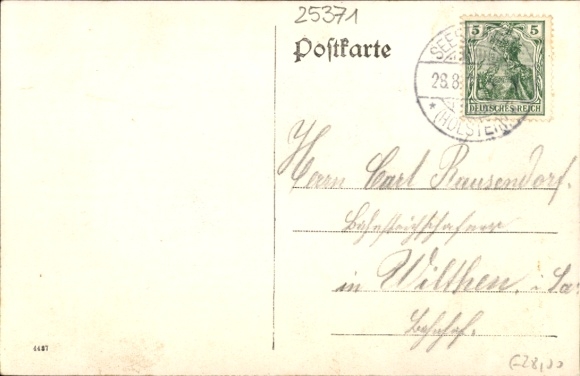 25371
Postkarte
5 5
DEUTSCHES REICH
SEE
28.8.
* (HOLSTEIN)
Herrn Carl Rausendorf.
Bahnsteigschaffner
in Wilthen, i. Sa.
Bahnhof.
4487
€28,00